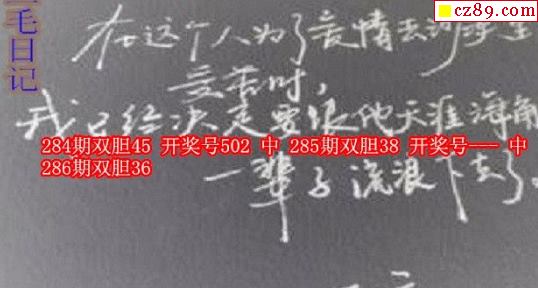 cz89.com
毛日记
在这个人为了爱情去沙漠里
受苦时，
我已经决定要跟他天涯海角
284期双胆45 开奖号502 中 285期双胆38 开奖号--- 中
286期双胆36
一辈子流浪下去了。